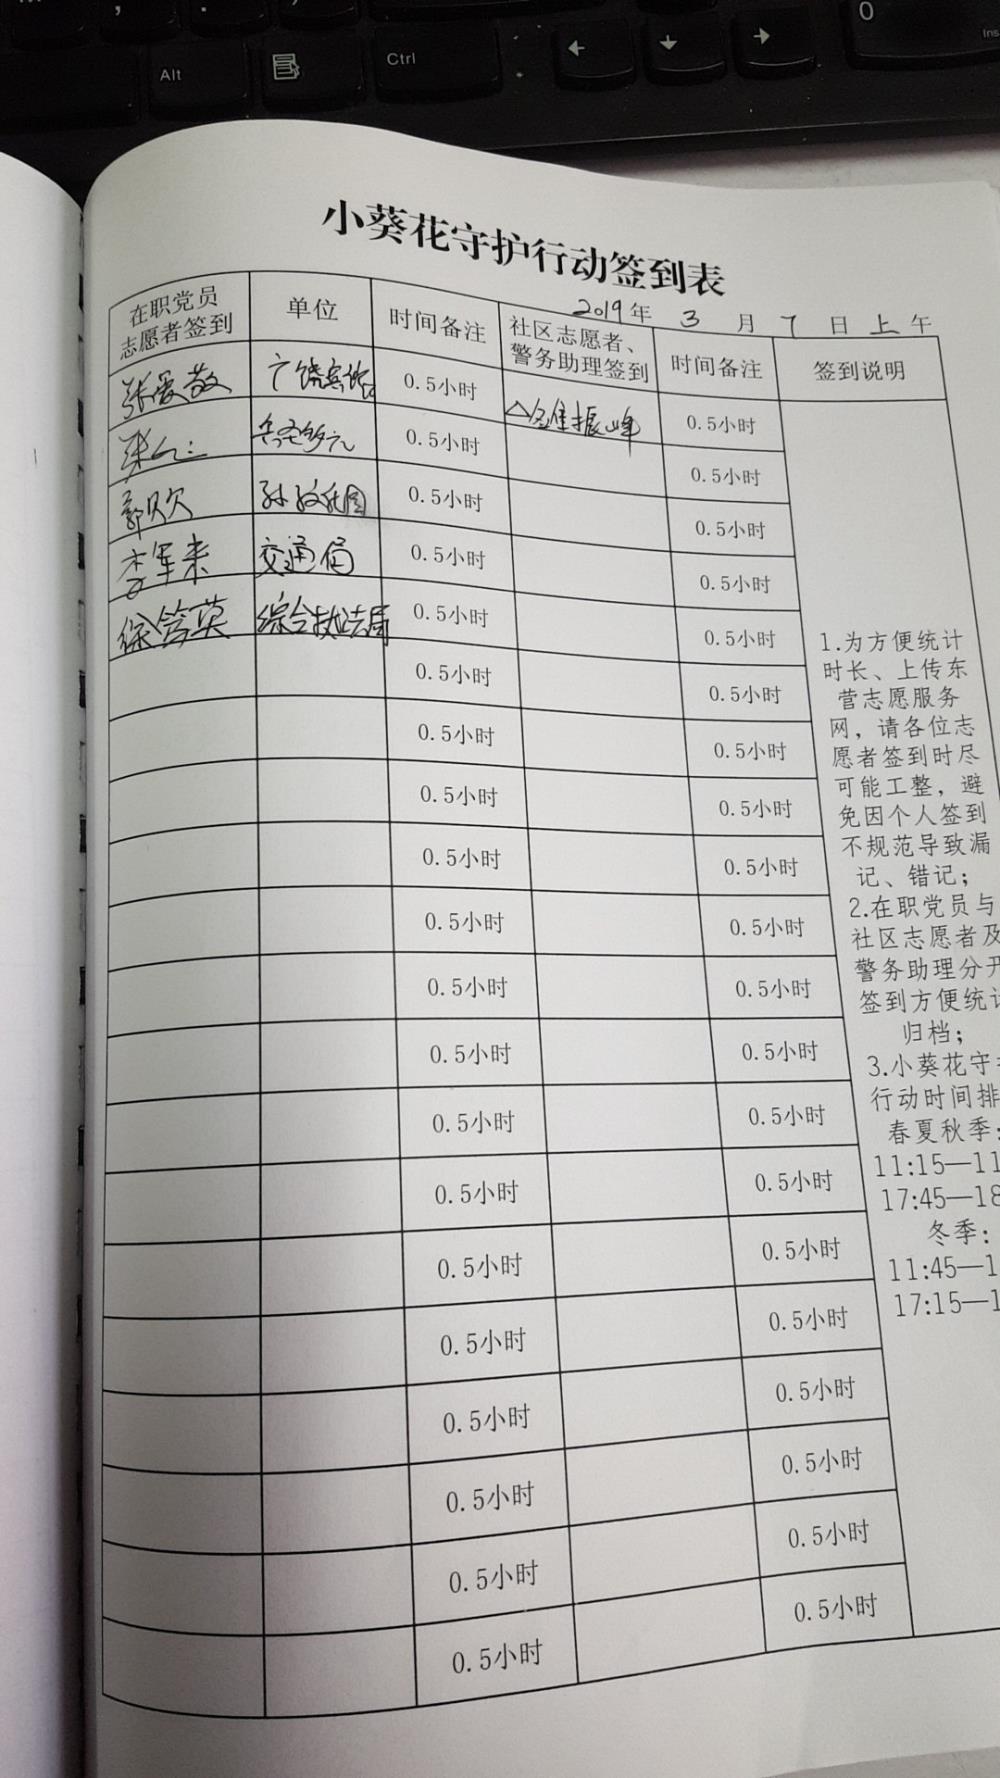 Alt
Ctrl
0
Ins
小葵花守护行动签到表
2019年 3 月 7 日 上 午
在职党员
志愿者签到
单位
时间备注
社区志愿者、
警务助理签到
时间备注
签到说明
张爱敬 0.5小时 振峰 0.5小时
0.5小时 0.5小时
郭 0.5小时 0.5小时
李军来 交通局 0.5小时 0.5小时
徐 英 综合执法局 0.5小时 0.5小时
0.5小时 0.5小时
0.5小时 0.5小时
0.5小时 0.5小时
0.5小时 0.5小时
0.5小时 0.5小时
0.5小时 0.5小时
0.5小时 0.5小时
0.5小时 0.5小时
0.5小时 0.5小时
0.5小时 0.5小时
0.5小时 0.5小时
0.5小时 0.5小时
0.5小时 0.5小时
0.5小时 0.5小时
0.5小时 0.5小时
1.为方便统计
时长、上传东
营志愿服务
网，请各位志
愿者签到时尽
可能工整，避
免因个人签到
不规范导致漏
记、错记；
2.在职党员与
社区志愿者及
警务助理分开
签到方便统计
归档；
3.小葵花守
行动时间排
春夏秋季：
11:15—11
17:45—18
冬季：
11:45—1
17:15—1